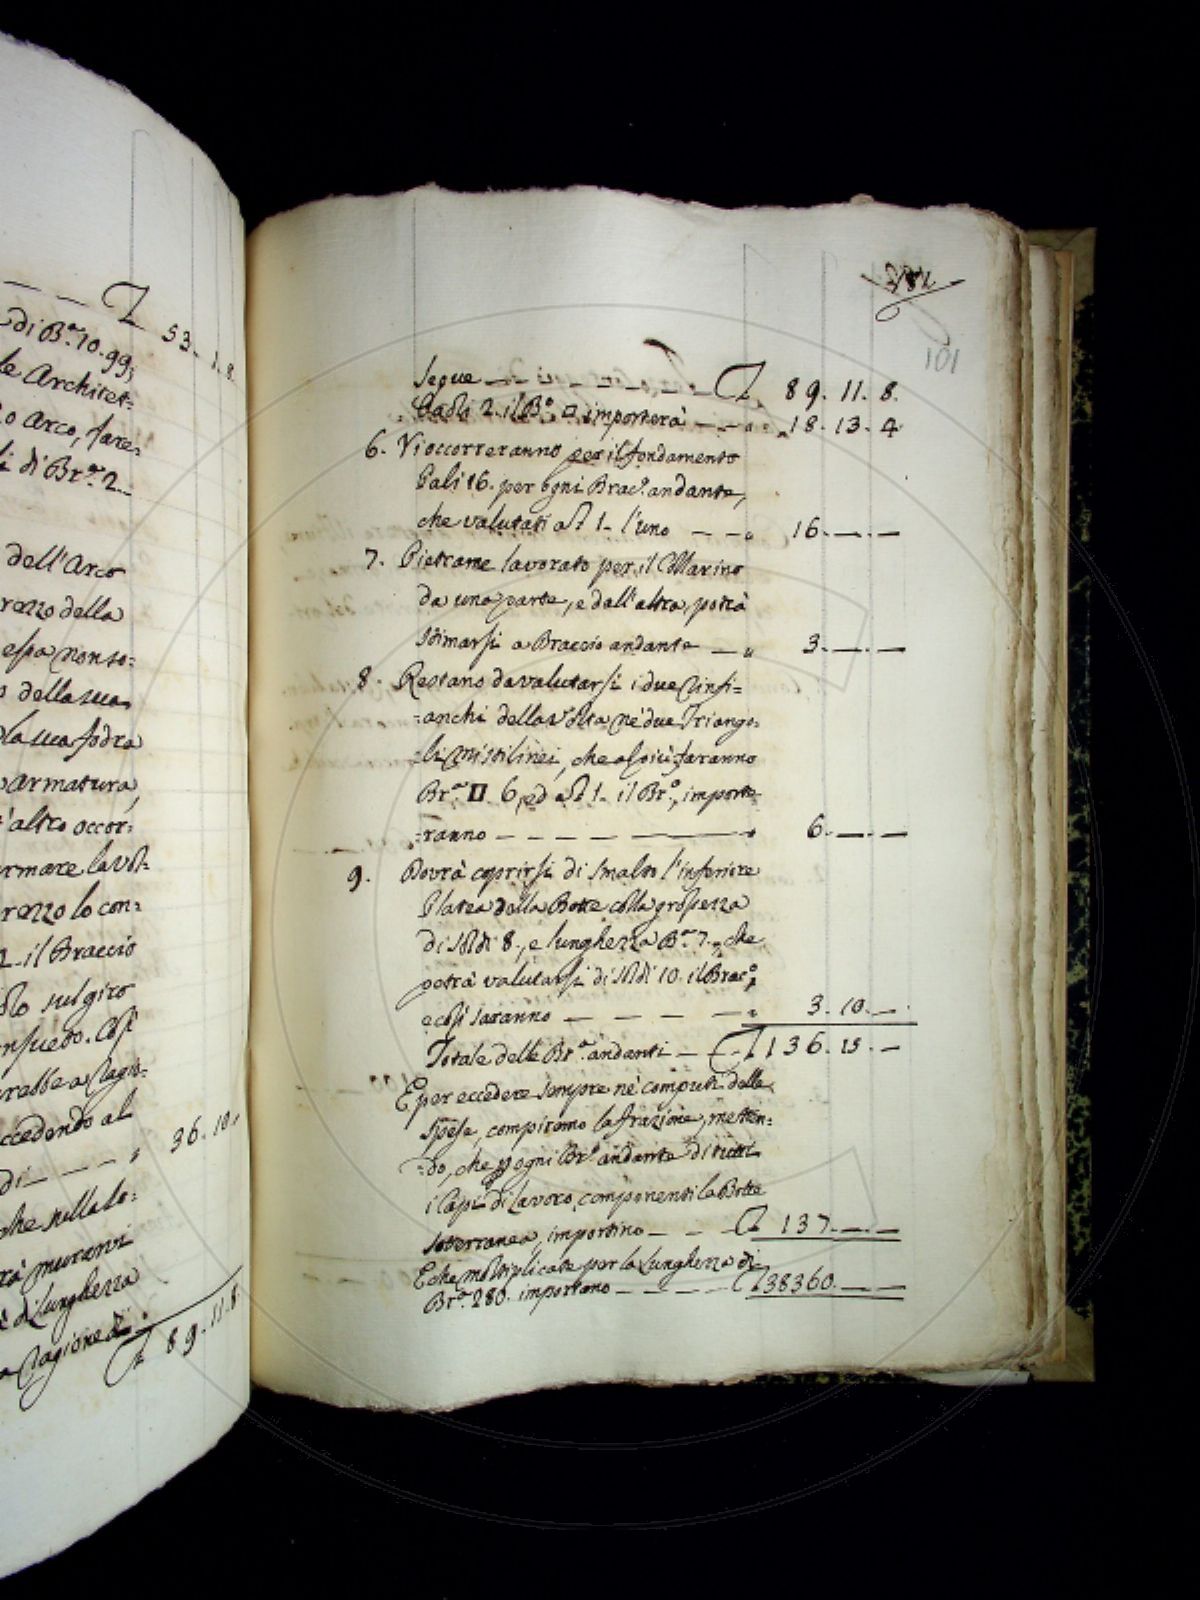 53. 1. 8.
di B.ª 10. 99;
le Architet=
o Arco, fare=
di Br.ª 2.
dell'Arco
rezzo della
essa non so=
della sua
la sua fodra
armatura,
altro occor=
armare la Vol=
rezzo lo con=
2. il Braccio
solo sul giro
Così
rebbe a ragio=
ccedendo al
di — — — " 36. 10.
che sulla lo=
rà murarvi
è di Lunghezza
a ragione di
£ 89. 11. 8.
101
Segue — — — — — — £ 89. 11. 8.
Paoli 2. il B.º □ importerà — — " 18. 13. 4
6. Vi occorreranno per il fondamento
Pali 16. per ogni Brac.º andante,
che valutati a £ 1. l'uno — — " 16. — . —
7. Pietrame lavorato per il Marino
da una parte, e dall'altra, potrà
stimarsi a Braccio andante — " 3. — . —
8. Restano da valutarsi i due Rinfi=
=anchi della Volta ne' due Triango=
=li Mistilinei, che al più faranno
Br.ª □ 6, ed a £ 1. il Br.º, importe=
=ranno — — — — — — " 6. — . —
9. Dovrà coprirsi di Smalto l'inferiore
Platea della Botte colla grossezza
di Soldi 8., e lunghezza B.ª 7., che
potrà valutarsi di Soldi 10. il Brac.º,
e così saranno — — — — — " 3. 10. —
Totale delle Br.ª andanti — £ 136. 15. —
E per eccedere sempre ne' computi delle
Spese, compiremo la frazione, metten=
=do, che p ogni Br.º andante di tutti
i Capi di Lavoro componenti la Botte
sotterranea, importino — — — £ 137. — . —
E che moltiplicate per la Lunghezza di
Br.ª 280. importano — — — — £ 38360. — . —